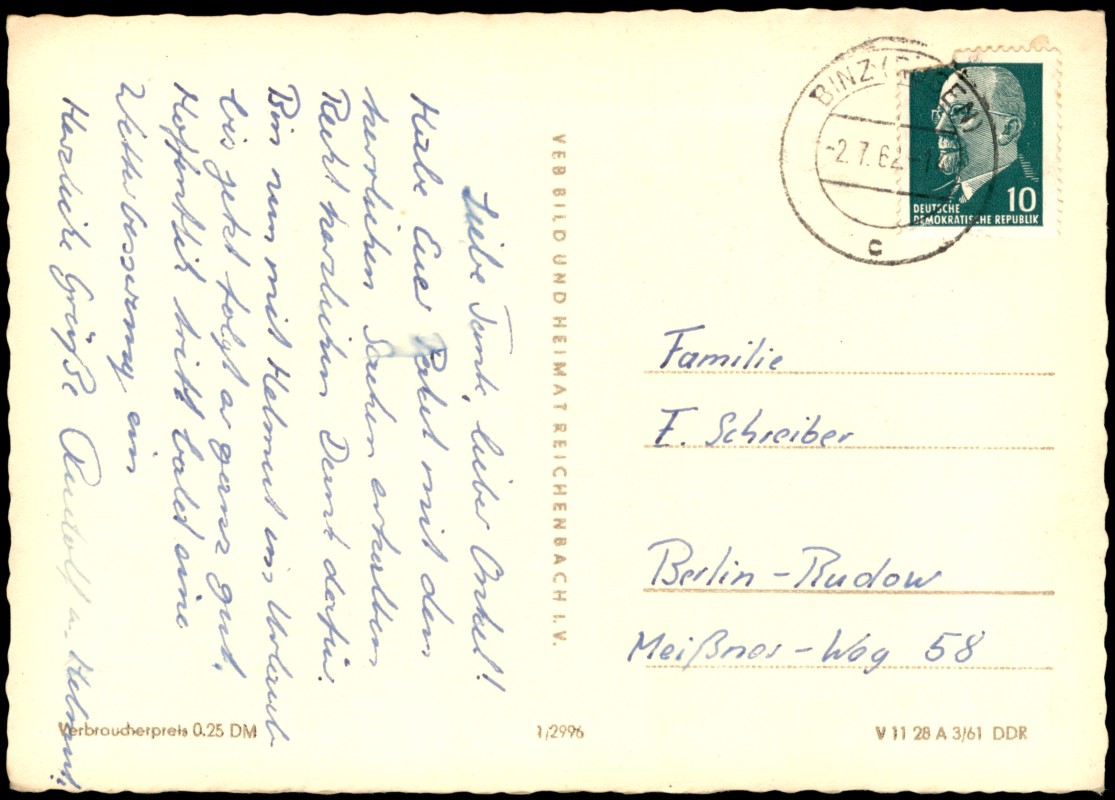 Liebe Tante, lieber Onkel!
Habe Euer Paket mit den
herrlichen Sachen erhalten
Recht herzlichen Dank dafür.
Bin nun mit Helmut im Urlaub
bis jetzt folgt a ganz gut.
Hoffentlich tritt bald eine
Wetterbesserung ein
Herzliche Grüße Rudolf u. Helmut.
VEB BILD UND HEIMAT REICHENBACH I. V.
BINZ (RÜGEN)
-2.7.62-1
c
10
DEUTSCHE
DEMOKRATISCHE REPUBLIK
Familie
F. Schreiber
Berlin-Rudow
Meißner-Weg 58
Verbraucherpreis 0.25 DM
1/2996
V 11 28 A 3/61 DDR